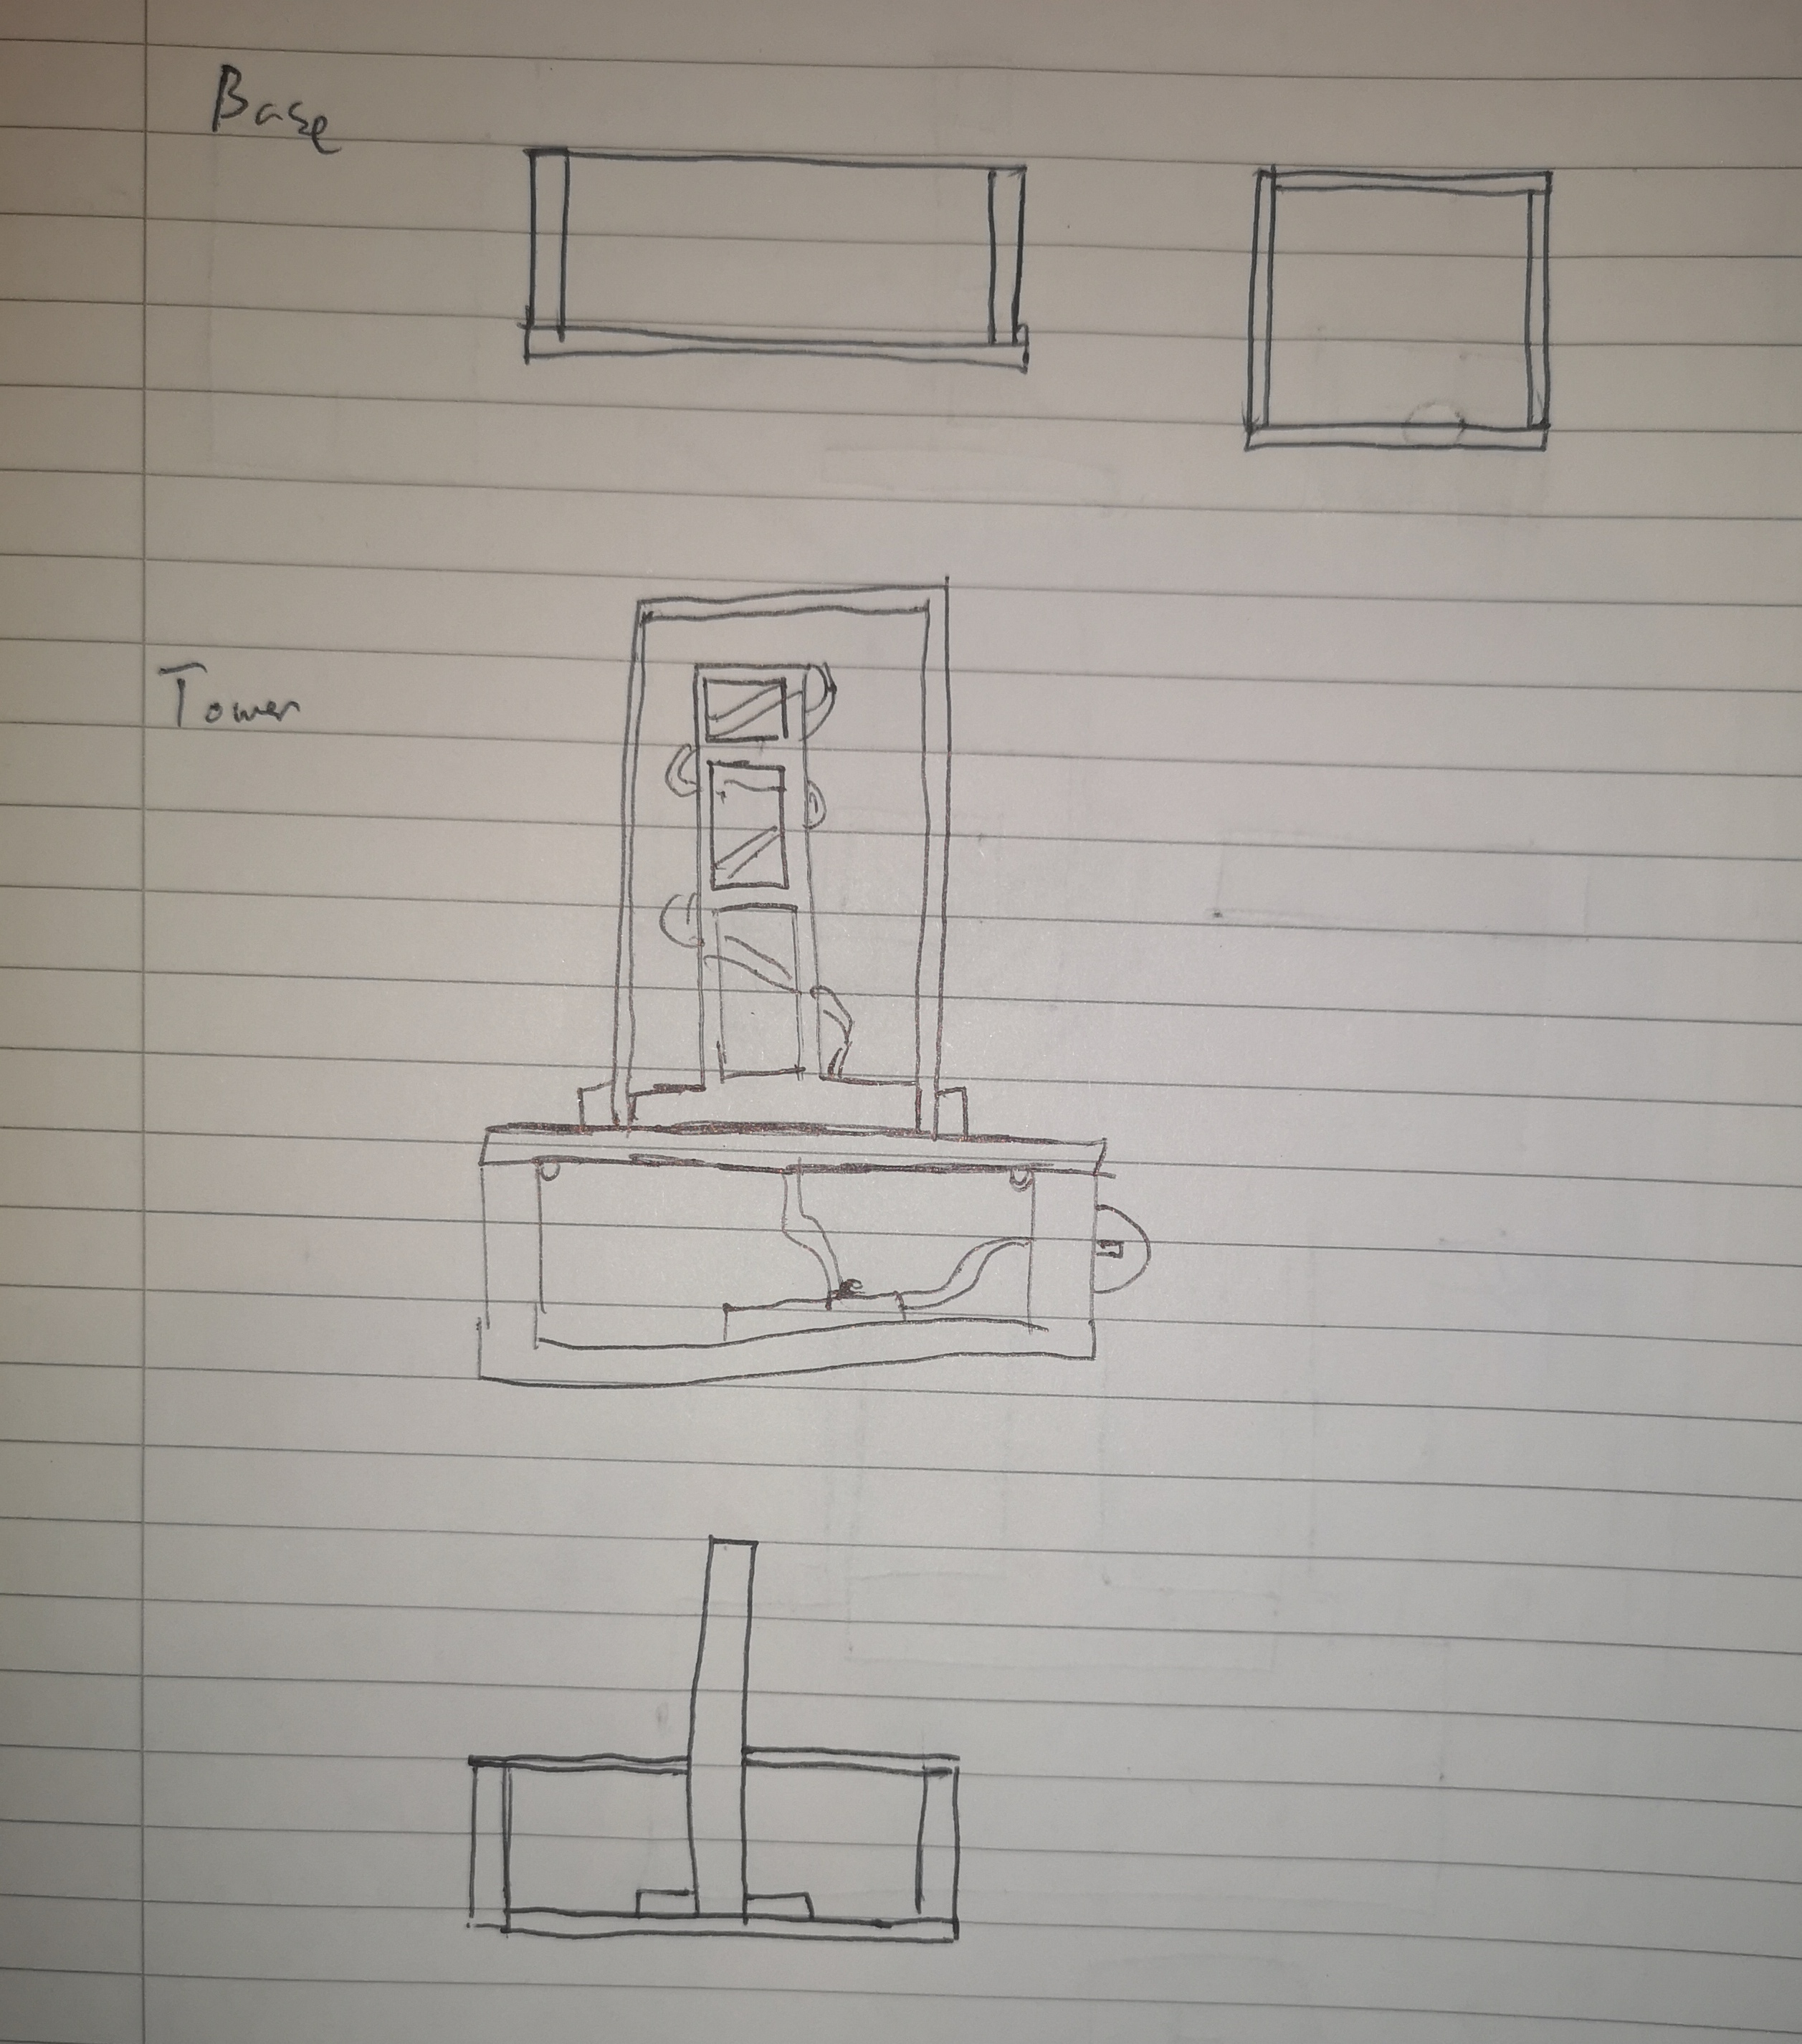 Base
Tower